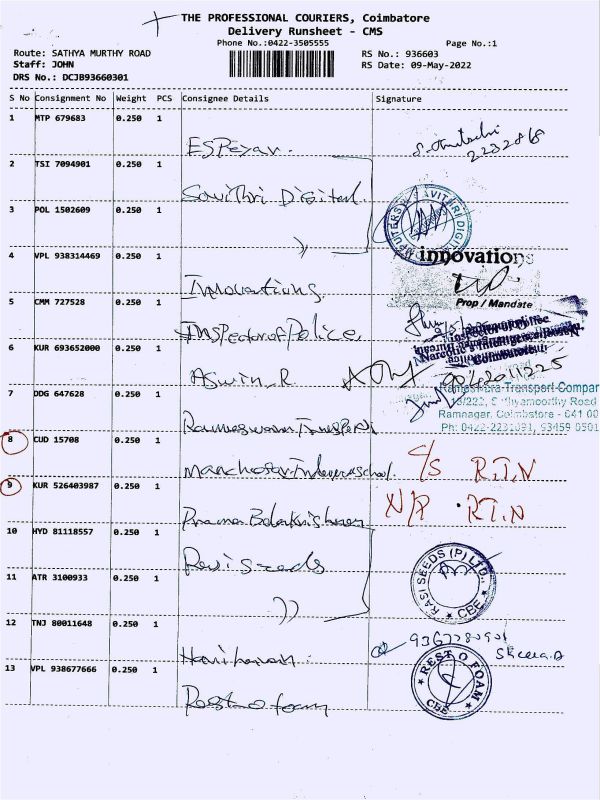 THE PROFESSIONAL COURIERS, Coimbatore
Delivery Runsheet - CMS
Phone No.:0422-3505555
Page No.:1
Route: SATHYA MURTHY ROAD
RS No.: 936603
Staff: JOHN
RS Date: 09-May-2022
DRS No.: DCJB93660301
S No Consignment No Weight PCS Consignee Details Signature
1 MTP 679683 0.250 1
2232868
2 TSI 7094901 0.250 1
Savithri Digital
SAVITHRI DIGIT
3 POL 1502609 0.250 1
4 VPL 938314469 0.250 1
innovations
Innovations
Prop / Mandate
5 CMM 727528 0.250 1
Inspector of Police
6 KUR 693652000 0.250 1
Aswin. R
7 DDG 647628 0.250 1
Rameswara Transport Compan
Ramnagar, Coimbatore - 641 00
Rameswara Transport
8 CUD 15708 0.250 1
C/S R.T.N
9 KUR 526403987 0.250 1
N/P R.T.N
Prama Balakrishnan
10 HYD 81118557 0.250 1
Rasi seeds
RASI SEEDS (P) LTD.,
CBE
11 ATR 3100933 0.250 1
12 TNJ 80011648 0.250 1
Hariharan
Sheela.D
13 VPL 938677666 0.250 1
REST O FOAM
CBE
Rest o foam